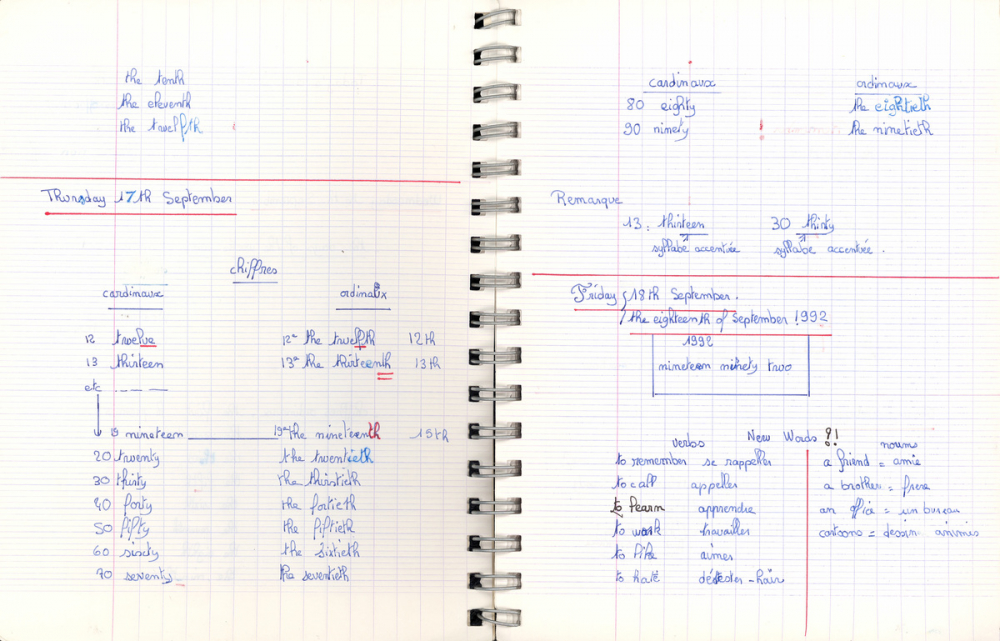 the tenth
the eleventh
the twelfth
Thursday 17th September
chiffres
cardinaux ordinaux
12 twelve 12e the twelfth 12th
13 thirteen 13e the thirteenth 13th
etc
19 nineteen 19e the nineteenth 15th
20 twenty the twentieth
30 thirty the thirtieth
40 forty the fortieth
50 fifty the fiftieth
60 sixty the sixtieth
70 seventy the seventieth
cardinaux ordinaux
80 eighty the eightieth
90 ninety the ninetieth
Remarque
13 : thirteen 30 thirty
syllabe accentuée syllabe accentuée .
Friday 18th September.
the eighteenth of September 1992
1992
nineteen ninety two
New Words ?!
verbs nouns
to remember se rappeller a friend = amie
to call appeller a brother = frere
to learn apprendre an office = un bureau
to work travailler cartoons = dessin animés
to like aimer
to hate détester - haïr